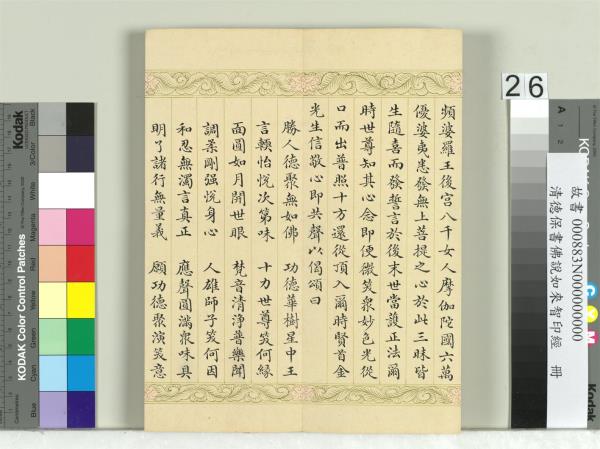 頻婆羅王後宮八千女人摩伽陀國六萬
優婆夷悉發無上菩提之心於此三昧皆
生隨喜而發誓言於後末世當護正法爾
時世尊知其心念即便微笑衆妙色光從
口而出普照十方還從頂入爾時賢首金
光生信敬心即共聲以偈頌曰
勝人德聚無如佛 功德華樹星中王
言頰怡悅次第味 十力世尊笑何緣
面圓如月開世眼 梵音清淨普樂聞
調柔剛强悅身心 人雄師子笑何因
和忍無濁言真正 應聲圓滿衆味具
明了諸行無量義 願功德聚演笑意
26
故書 000883N000000000
清德保書佛說如來智印經 冊
Kodak
KODAK Color Control Patches
Blue
Cyan
Green
Yellow
Red
Magenta
White
3/Color
Black
Kodak
A 1 2
C
Y
M